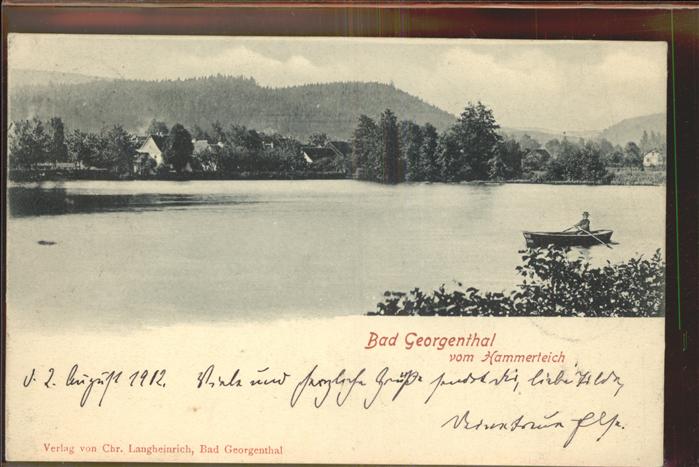 Bad Georgenthal
vom Hammerteich
d. 2. August 1912. Viele und herzliche Grüße sendet dir, liebe Hilda,
Deine treue Else.
Verlag von Chr. Langheinrich, Bad Georgenthal